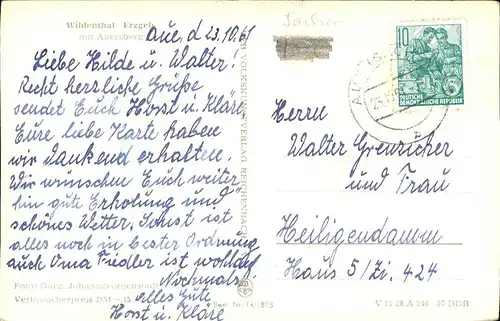 Wildenthal Erzgeb
mit Auersberg
Aue, d 23.10.61
Liebe Hilde u. Walter!
Recht herzliche Grüße
sendet Euch Horst u. Kläre
Eure liebe Karte haben
wir dankend erhalten.
Wir wünschen Euch weiter-
hin gute Erholung und
schönes Wetter. Sonst ist
alles noch in bester Ordnung
auch Oma Fiedler ist wohlauf
Nochmals
alles Gute
Horst u. Kläre
Foto: Georgenstadt
Verbraucherpreis DM -.15
Best. Nr. 14/1813
VERLAG REICHENBACH
10
DEUTSCHE
DEMOKRATISCHE REPUBLIK
AUE
Herrn
Walter Grenzicher
und Frau
Heiligendamm
Haus 5/Zi. 424
V 11 28 A 246 57 DDR